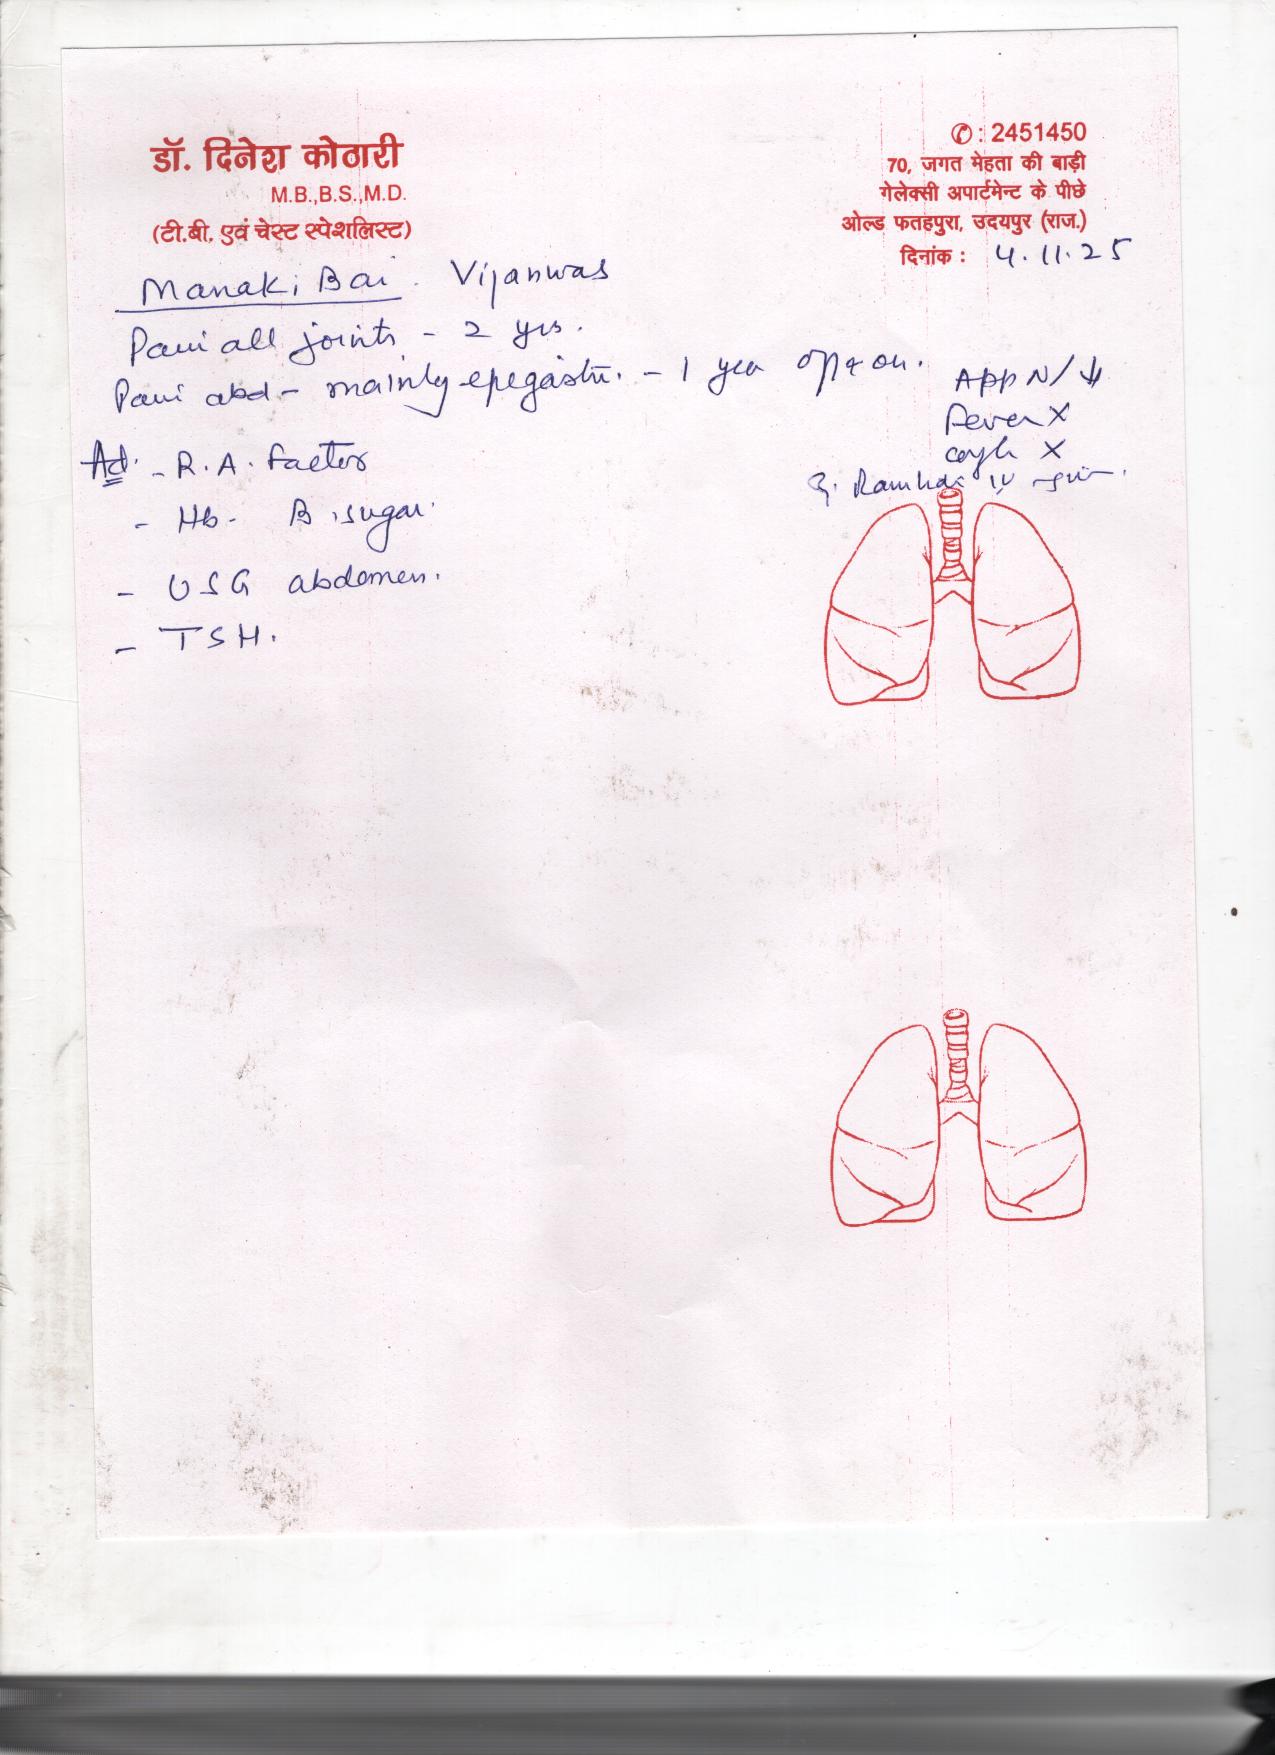 डॉ. दिनेश कोठारी
M.B.,B.S.,M.D.
(टी.बी. एवं चेस्ट स्पेशलिस्ट)
✆ : 2451450
70, जगत मेहता की बाड़ी
गेलेक्सी अपार्टमेन्ट के पीछे
ओल्ड फतहपुरा, उदयपुर (राज.)
दिनांक : 4.11.25
Manaki Bai. Vijanwas
Pain all joints - 2 yrs.
Pain abd - mainly epegastri. - 1 year off & on.
App N/↓
Fever X
cough X
Ad. - R.A. Factor
- Hb. B. sugar.
- USG abdomen.
- TSH.